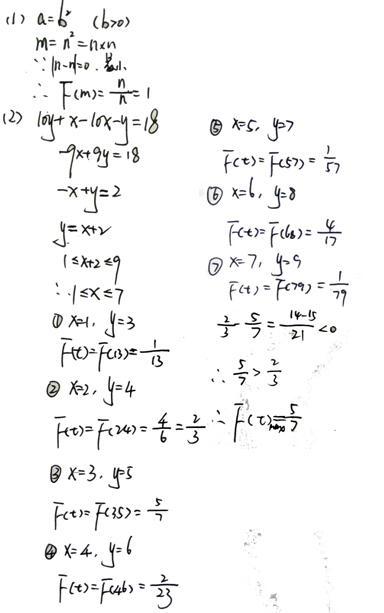 (1) a=b² (b>0)
m=n²=n×n
∵ |n-n|=0
∴ F(m)=n/n=1
(2) 10y+x-10x-y=18
-9x+9y=18
-x+y=2
y=x+2
1≤x+2≤9
∴ 1≤x≤7
① x=1, y=3
F(t)=F(13)=1/13
② x=2, y=4
F(t)=F(24)=4/6=2/3
③ x=3, y=5
F(t)=F(35)=5/7
④ x=4, y=6
F(t)=F(46)=2/23
⑤ x=5, y=7
F(t)=F(57)=1/57
⑥ x=6, y=8
F(t)=F(68)=4/17
⑦ x=7, y=9
F(t)=F(79)=1/79
2/3-5/7=14-15/21<0
∴ 5/7>2/3
∴ F(t)max=5/7